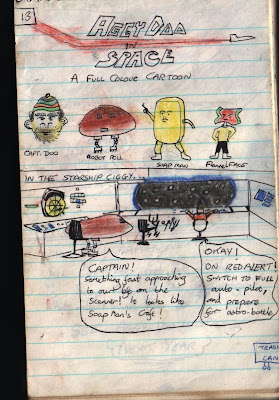 13
AGGY DOO
IN
SPACE
A FULL COLOUR CARTOON
CAPT. DOO
ROBOT POLL
SOAP MAN
FLANNELFACE
IN THE STARSHIP CIGGY...
CAPTAIN!
Something fast approaching
to our
on the
Scanner! It looks like
Soap Man's Craft!
OKAY!
ON RED ALERT!
SWITCH TO FULL
auto-pilot,
and prepare
for astro-battle